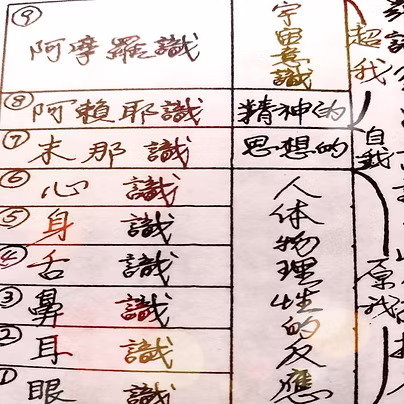 ⑨ 阿摩羅識 宇宙意識 超我
⑧ 阿賴耶識 精神的
⑦ 末那識 思想的 自我
⑥ 心識 人体物理性的反應 原我
⑤ 身識
④ 舌識
③ 鼻識
② 耳識
① 眼識